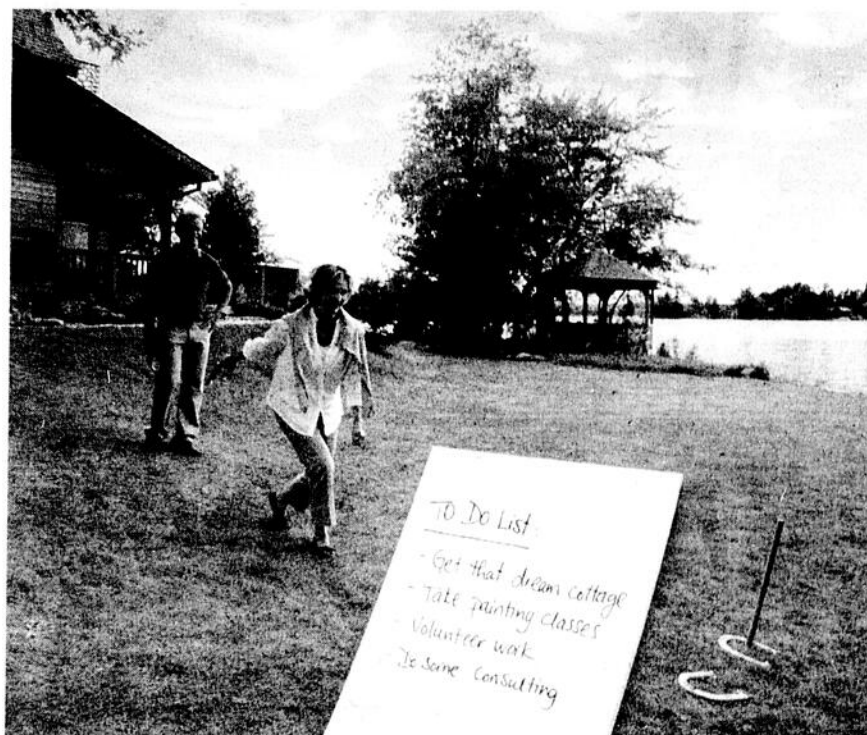 To Do List:
- Get that dream cottage
- Take painting classes
- Volunteer work
Do some consulting